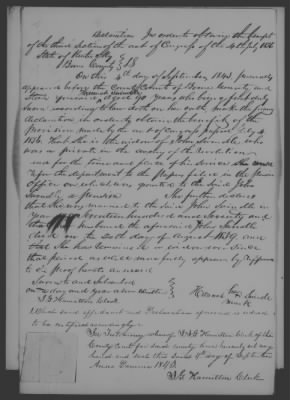 Declaration In order to obtain the benefit
of the third section of the act of Congress of the 4th July 1836
State of Kentucky
Boone County
On this 4th day of September 1843, personally
appeared before the County Court of Boone County and
State aforesaid, aged 90 years who being first
sworn according to law doth on her oath make the following
declaration in order to obtain the benefit of the
provision made by the act of Congress passed July 4
1836. That she is the widow of John
who was a private in the army of the Revolution
and for the time and place of his services She
refer the department to the Papers filed in the
Office on which was granted to the said John
a pension She further declares
that she was married to the said John
year seventeen hundred and seventy and
that her husband the aforesaid John
died on the 20th day of August
that She has remained a widow ever since
that period as will more fully appear by reference
to proof hereto annexed
Sworn to and Subscribed
on day and year above written
J G Hamilton Clerk
her
mark
Which said affidavit and Declaration aforesaid is ordered
to be certified accordingly
In Testimony whereof I J G Hamilton Clerk of the
County Court for said county have hereunto set my
hand and seal this 4th day of September
Anno Domini 1843.
J G Hamilton Clerk